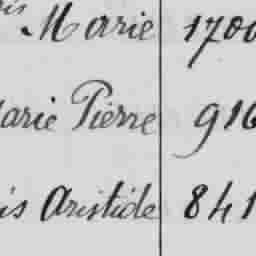 is Marie 1700
arie Pierre 916
is Aristide 841